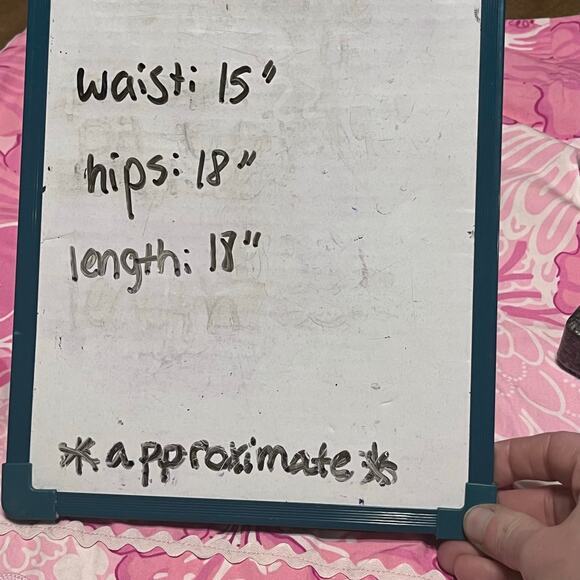 waist: 15"
hips: 18"
length: 18"
*approximate*